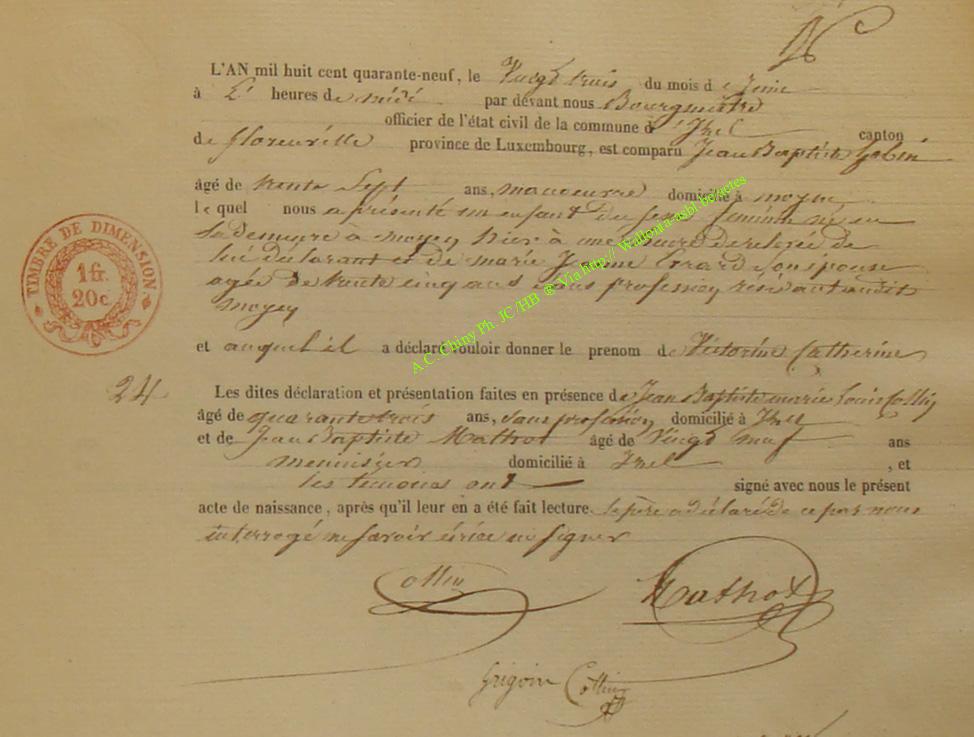 L'AN mil huit cent quarante-neuf, le Vingt trois du mois de
à heures de midi par devant nous Bourgmestre
officier de l'état civil de la commune d'Izel canton
de florenville province de Luxembourg, est comparu Jean Baptiste Gobin
âgé de trente Sept ans, manoeuvre domicilié à moyen
lequel nous a présenté un enfant du sexe feminin né en
Sa Demeure à moyen hier à une heure de relevée de
lui déclarant et de marie Jeanne Errard Son épouse
agée de trente cinq ans Sans profession audit
moyen
et auquel il a déclaré vouloir donner le prenom de Victorine Catherine
24 Les dites déclaration et présentation faites en présence de Jean Baptiste marie Louis Collin
âgé de quarante trois ans, Sans profession domicilié à Izel
et de Jean Baptiste Mathot âgé de Vingt neuf ans
menuisier domicilié à Izel , et
les temoins ont signé avec nous le présent
acte de naissance, après qu'il leur en a été fait lecture le père a déclaré de ce par nous
interrogé ne Savoir écrire ni Signer
Collin Mathot
Collin
TIMBRE DE DIMENSION
1 fr.
20 c
A.C. Chiny Ph. JC /HB @ Via http:// Wallonia-asbl be/actes